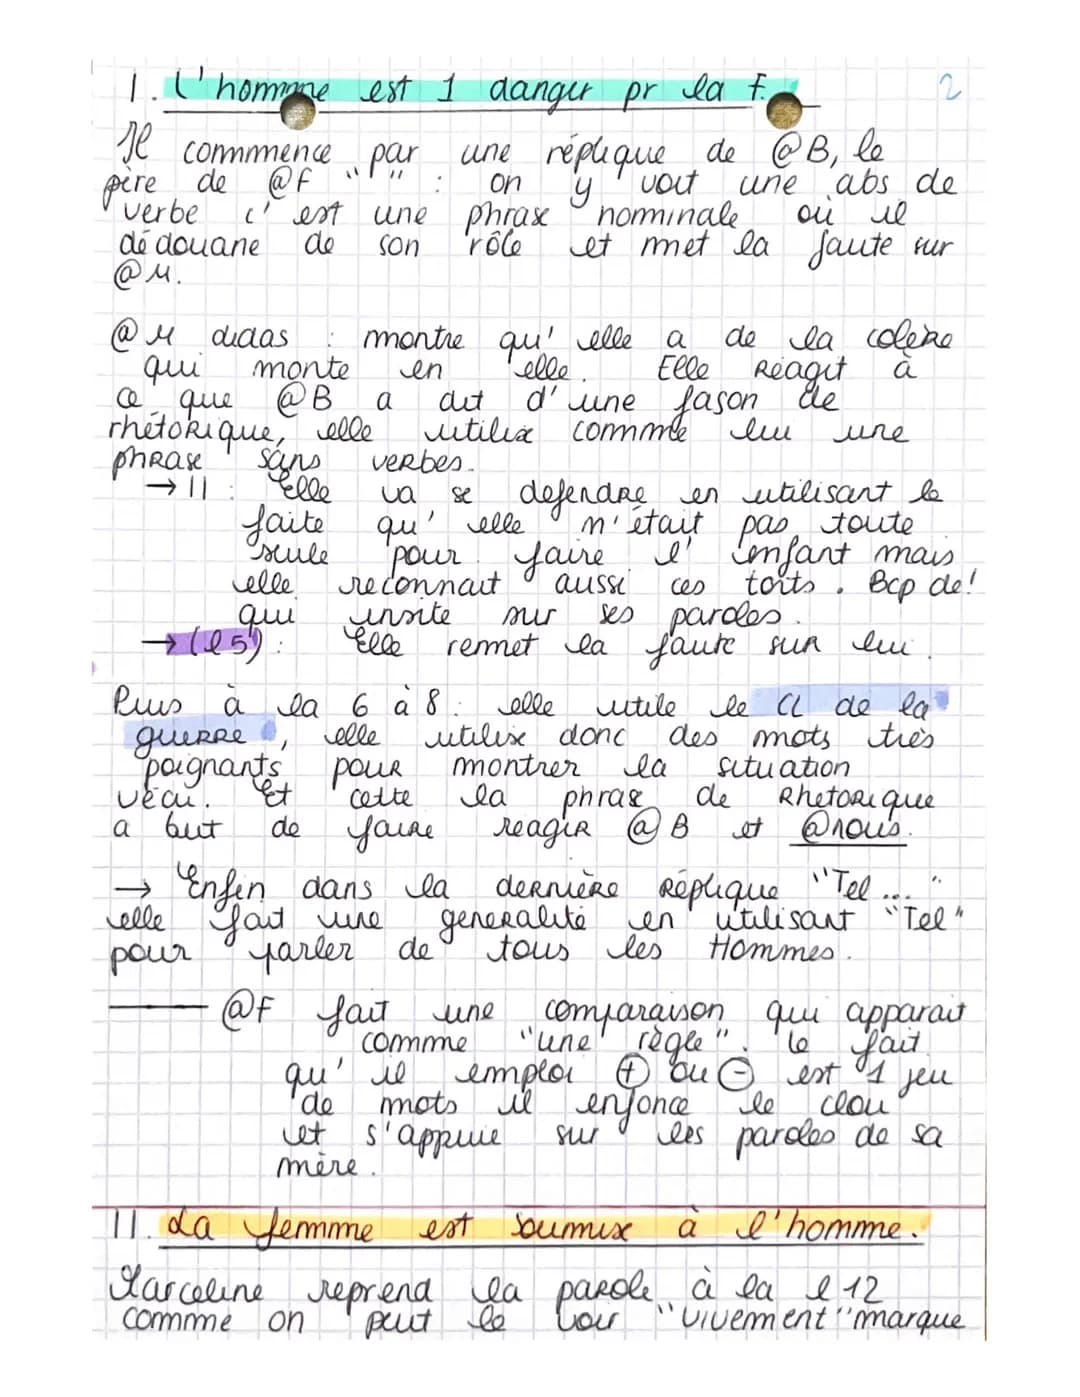 I. L'homme est 1 danger pr la F.
2
Il commmence par une réplique de @B, le
père de @F " " : on y voit une abs de
verbe c'est une phrase nominale où il
dédouane de son rôle et met la faute sur
@M.
@M didas : montre qu'elle a de la colère
qui monte en elle. Elle réagit à
ce que @B a dit d'une fason de
rhétorique, elle utilise commme lui une
phrase sans verbes.
→ || : Elle va se defendre en utilisant le
faite qu'elle n'était pas toute
seule pour faire l'enfant mais
elle reconnait aussi ces torts. Bcp de !
qui insite sur ses paroles.
→ (l5) : Elle remet la faute sur lui.
Puis à la 6 à 8 : elle utile le CL de la
guerre, elle utilise donc des mots très
poignants pour montrer la situation
vécu. Et cette la phrase de Rhetorique
a but de faire reagir @B et @nous.
→ Enfin dans la dernière réplique "Tel ..."
elle fait une generalité en utilisant "Tel"
pour parler de tous les Hommes.
— @F fait une comparaison qui apparait
comme "une règle". Le fait
qu'il emploi ⊕ ou ⊖ est 1 jeu
de mots il enfonce le clou
et s'appuie sur les paroles de sa
mère.
II. La femme est soumise à l'homme.
Marceline reprend la parole à la l 12
commme on peut le voir "vivement" marque